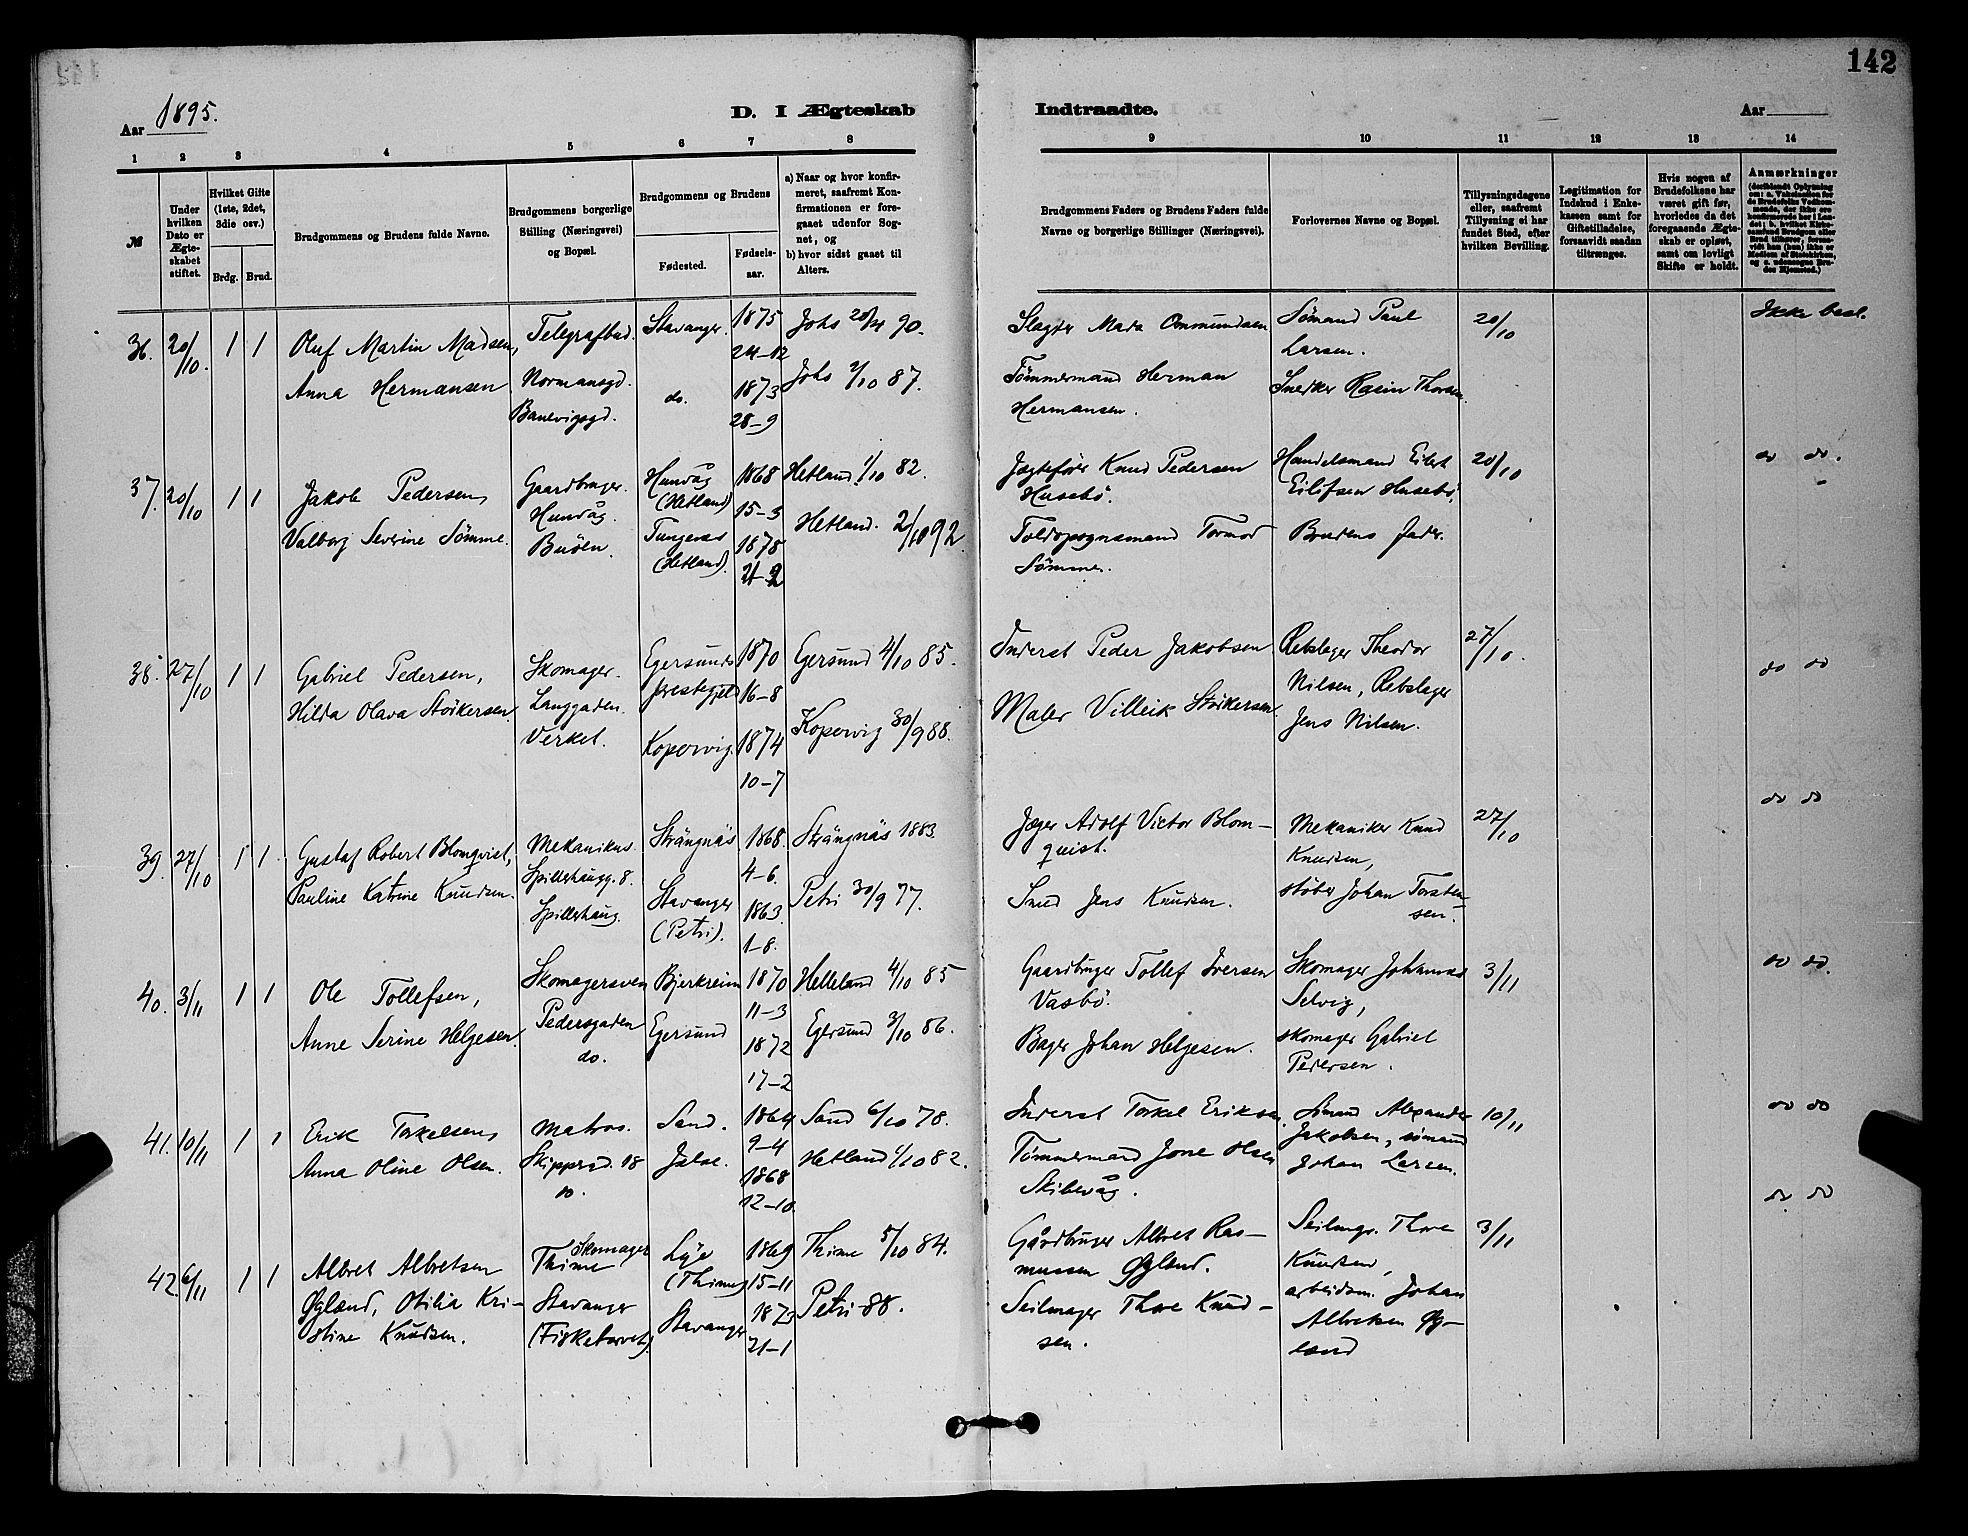 142
Aar 1895.
D. I Ægteskab
Indtraadte.
Aar
1 2 3 4 5 6 7 8 9 10 11 12 13 14
№
Under hvilken Dato er Ægteskabet stiftet.
Hvilket Gifte (1ste, 2det, 3die osv.)
Brdg. Brud.
Brudgommens og Brudens fulde Navne.
Brudgommens borgerlige Stilling (Næringsvei) og Bopæl.
Brudgommens og Brudens
Fødested.
Fødselsaar.
a) Naar og hvor konfirmeret, saafremt Konfirmationen er foregaaet udenfor Sognet, og
b) hvor sidst gaaet til Alters.
Brudgommens Faders og Brudens Faders fulde Navne og borgerlige Stillinger (Næringsvei).
Forlovernes Navne og Bopæl.
Tillysningsdagene eller, saafremt Tillysning ei har fundet Sted, efter hvilken Bevilling.
Legitimation for Indskud i Enkekassen samt for Giftetilladelse, forsaavidt saadan tiltrænges.
Hvis nogen af Brudefolkene har været gift før, hvorledes da det foregaaende Ægteskab er opløst, samt om lovligt Skifte er holdt.
Anmærkninger
36. 20/10. 1 1
Oluf Martin Madsen,
Anna Hermansen
Telegrafbud.
Normansgd.
Banevigsgd.
Stavanger.
do.
1875
24-12
1873
28-9
Johs 20/4 90.
Johs 2/10 87.
Slagter Mads Ommundsen
Tømmermand Herman
Hermansen.
Sømand Paul
Larsen.
Snedker Rasin Thorsen.
20/10
Ikke besl.
37. 20/10 1 1
Jakob Pedersen,
Valborg Severine Sømme.
Gaardbruger.
Hundvåg.
Buöen.
Hundvåg
(Hetland)
Tungenes
(Hetland).
1868
15-3
1878
21-2
Hetland 1/10 82.
Hetland. 2/10 92.
Jagtefører Knud Pedersen
Husebö.
Toldopsynsmand Tormod
Sömme.
Handelsmand Eilert
Eilefsen Husebö.
Brudens Fader.
20/10
do do.
38. 27/10 1 1
Gabriel Pedersen,
Hilda Olava Störkersen.
Skomager.
Langgaden.
Verket.
Egersunds
præstegjeld
Kopervig.
1870
16-8
1874
10-7
Egersund 4/10 85.
Kopervig 30/9 88.
Inderst Peder Jakobsen
Maler Villeik Störkersen.
Rebslager Theodor
Nilsen, Rebslager
Jens Nilsen.
27/10.
do do
39. 27/10 1 1
Gustaf Robert Blomqvist,
Pauline Katrine Knudsen.
Mekanikus.
Spilderhaugg. 8.
Spilderhaug.
Strängnäs
Stavanger
(Petri).
1868.
4-6.
1863.
1-8.
Strängnäs 1883.
Petri 30/9 77.
Jæger Adolf Victor Blom-
quist.
Smed Jens Knudsen.
Mekaniker Knud
Knudsen,
støber Johan Torsten-
sen.
27/10
do do
40. 3/11 1 1
Ole Tollefsen,
Anne Serine Helgesen.
Skomagersvend
Pedersgaden
do.
Bjerkreim
Egersund
1870
11-3
1872
17-2
Helleland 4/10 85
Egersund 3/10 86.
Gaardbruger Tollef Iversen
Vasbö.
Bager Johan Helgesen.
Skomager Johannes
Selvig,
skomager Gabriel
Pedersen.
3/11
do do.
41. 10/11 1 1
Erik Torkelsen,
Anna Oline Olsen.
Matros.
Skipprgd. 18
do.
Sand.
Jelse.
1864
9-4
1868
12-10
Sand 6/10 78.
Hetland 1/10 82.
Inderst Torkel Eriksen.
Tømmermand Jone Olsen
Skibevåg.
Sømand Alexander
Jakobsen, sømand
Johan Larsen.
10/11
do do
42. 6/11 1 1
Albret Albretsen
Øgland, Otilia Kri-
stine Knudsen.
Skomager
Thime
Stavanger
(Fisketorvet).
Lye
(Thime)
Stavanger
1869
15-11
1873
21-1
Thime 5/10 84.
Petri 88.
Gårdbruger Albret Ras-
mussen Øgland.
Seilmager Thore Knud-
sen.
Seilmgr. Thore
Knudsen,
arbeidsm. Johan
Albretsen Øg-
land
3/11
do do